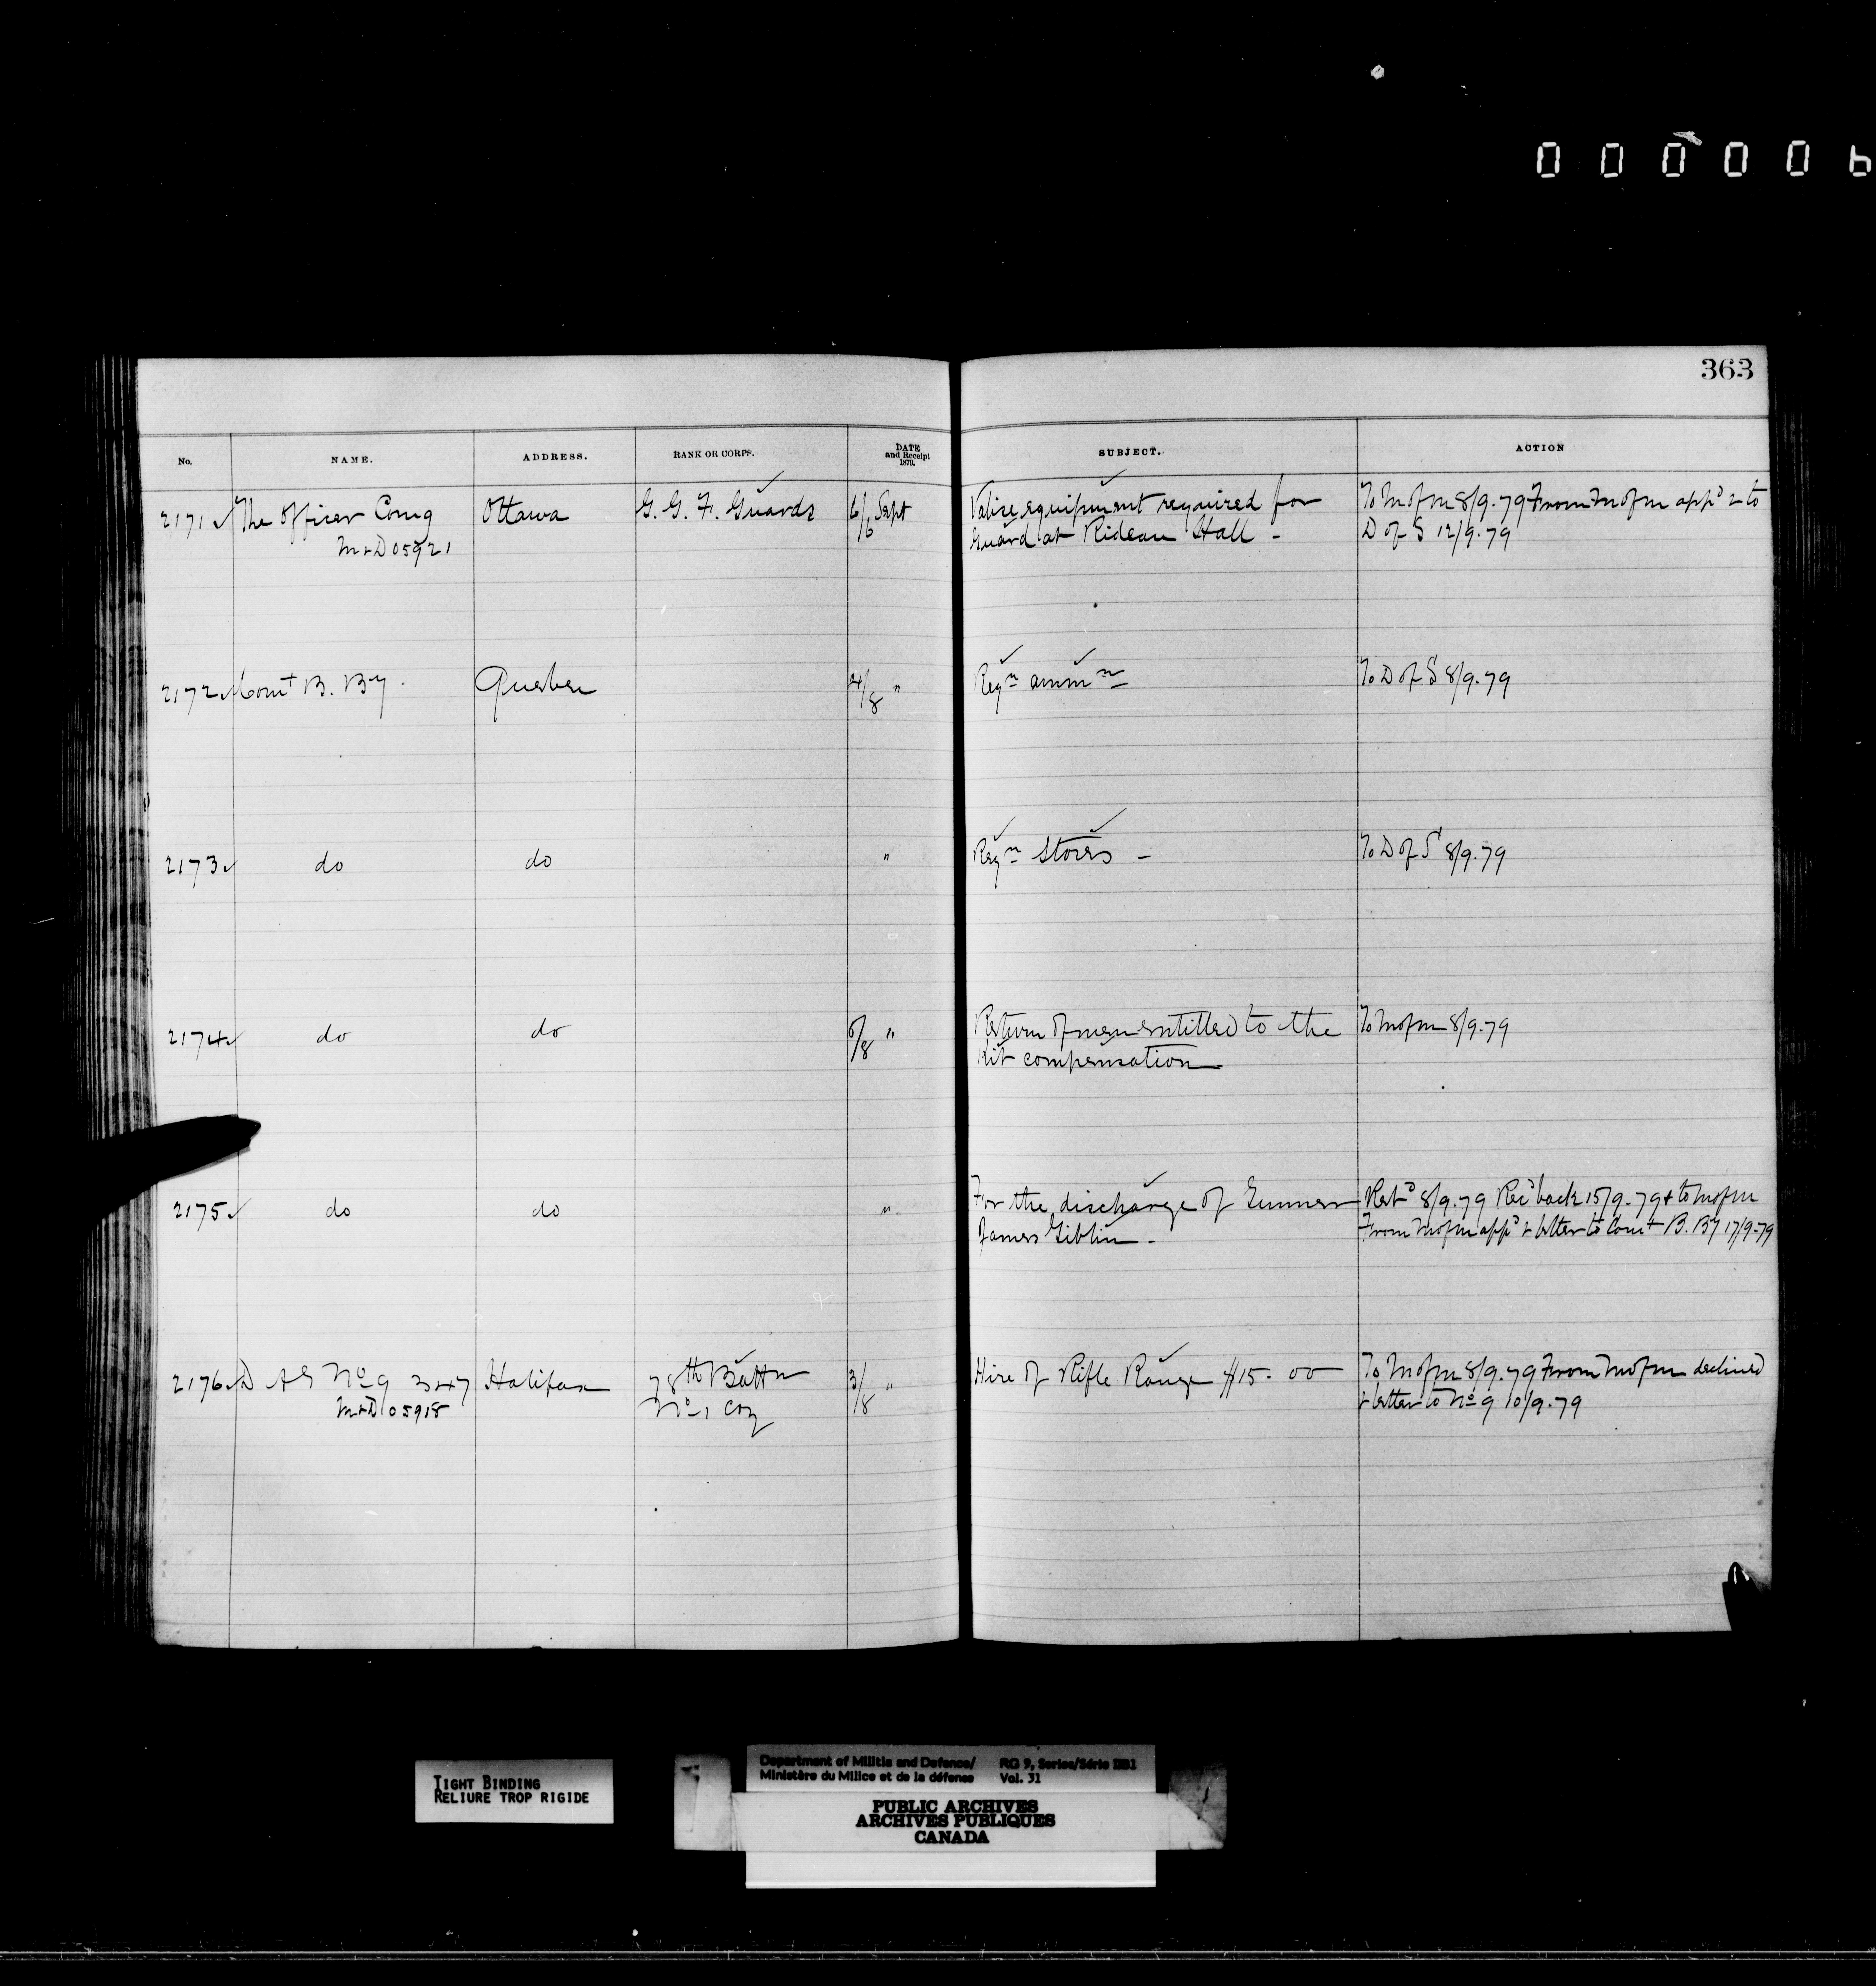 000006
363
No. NAME. ADDRESS. RANK OR CORPS. DATE and Receipt 1879. SUBJECT. ACTION
2171 The Officer Comg Ottawa G. G. F. Guards 6/6 Sept Valise equipment required for To M of m 8/9.79 From M of m appd & to
M&D 05921 Guard at Rideau Hall - D of S 12/9.79
2172 Comt B. By. Quebec 4/8 " Reqn ammn To D of S 8/9.79
2173 do do " Reqn Stores - To D of S 8/9.79
2174 do do 6/8 " Return of men entitled to the To M of m 8/9.79
Kit compensation
2175 do do " For the discharge of Gunner Retd 8/9.79 Recd back 15/9.79 & to M of m
James Giblin - From M of m appd & letter to Comt B. By 17/9.79
2176 D A G No 9 347 Halifax 78th Battn 3/8 " Hire of Rifle Range $15.00 To M of m 8/9.79 From M of m declined
M&D 05918 No 1 Coy & letter to No 9 10/9.79
TIGHT BINDING
RELIURE TROP RIGIDE
Department of Militia and Defence/ RG 9, Series/Série IIB1
Ministère du Milice et de la défense Vol. 31
PUBLIC ARCHIVES
ARCHIVES PUBLIQUES
CANADA